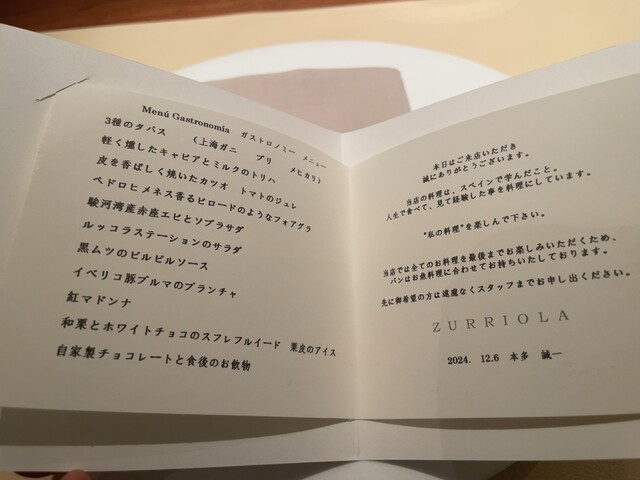 Menú Gastronomia ガストロノミー メニュー
3種のタパス (上海ガニ ブリ メヒカリ)
軽く燻したキャビアとミルクのトリハ
皮を香ばしく焼いたカツオ トマトのジュレ
ペドロヒメネス香るビロードのようなフォアグラ
駿河湾産赤座エビとソブラサダ
ルッコラステーションのサラダ
黒ムツのピルピルソース
イベリコ豚プルマのプランチャ
紅マドンナ
和栗とホワイトチョコのスフレフルイード 栗皮のアイス
自家製チョコレートと食後のお飲物
本日はご来店いただき
誠にありがとうございます。
当店の料理は、スペインで学んだこと。
人生で食べて、見て経験した事を料理にしています。
"私の料理"を楽しんで下さい。
当店では全てのお料理を最後までお楽しみいただくため、
パンはお魚料理に合わせてお持ちいたしております。
先に御希望の方は遠慮なくスタッフまでお申し出ください。
ZURRIOLA
2024. 12.6 本多 誠一